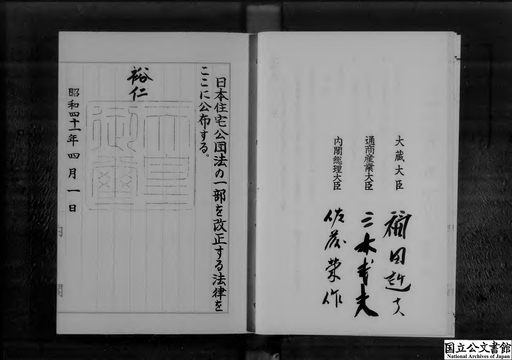 日本住宅公団法の一部を改正する法律を
ここに公布する。
裕仁
天皇
御璽
昭和四十一年四月一日
大蔵大臣 福田赳夫
通商産業大臣 三木武夫
内閣総理大臣 佐藤榮作
国立公文書館
National Archives of Japan